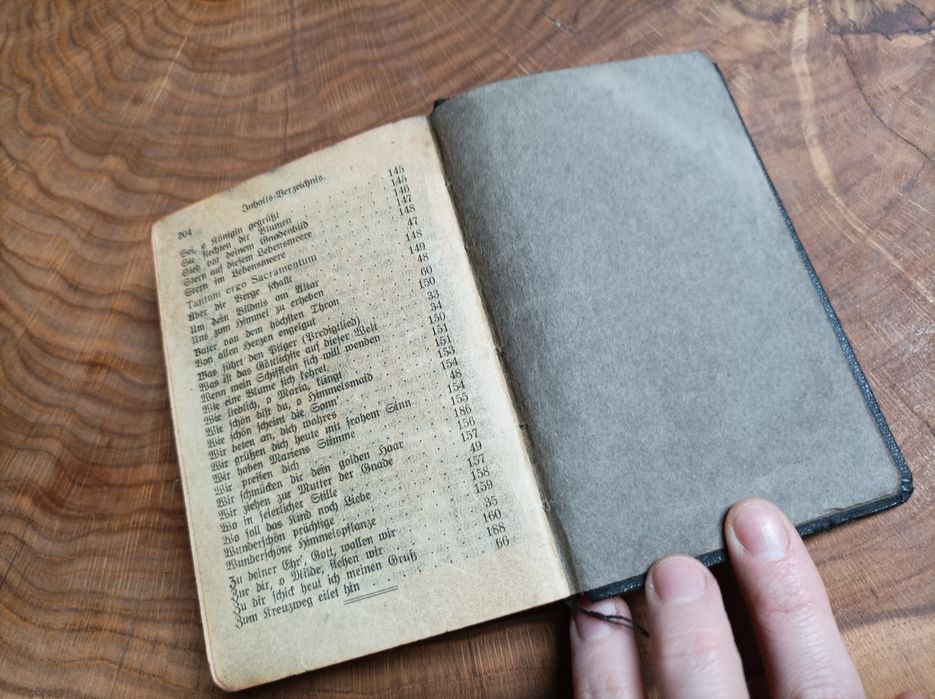 204 Inhalts-Verzeichnis.
Sei, o Königin gegrüßt 145
Sie flochten dir Blumen 145
Sieh vor deinem Gnadenbild 146
Stern auf diesem Lebensmeere 147
Stern im Lebensmeere 148
Tantum ergo Sacramentum 47
Über die Berge schallt 148
Um dein Bildnis am Altar 149
Uns zum Himmel zu erheben 48
Vater von dem höchsten Thron 60
Von allen Herzen engelgut 150
Was führt den Pilger (Prediglied) 33
Was ist das Göttlichste auf dieser Welt 34
Wenn mein Schifflein sich will wenden 150
Wie eine Blume sich kehret 151
Wie lieblich, o Maria, klingt 151
Wie schön bist du, o Himmelsmaid 153
Wie schön scheint die Sonn' 154
Wir beten an, dich wahres 48
Wir grüßen dich heute mit frohem Sinn 154
Wir haben Mariens Stimme 155
Wir preisen dich 186
Wir schmücken dir dein golden Haar 156
Wir ziehen zur Mutter der Gnade 157
Wo in feierlicher Stille 49
Wo soll das Kind noch Liebe 157
Wunderschön prächtige 158
Wunderschöne Himmelspflanze 159
Zu deiner Ehr', Gott, wollen wir 35
Zur dir, o Milde, flehen wir 160
Zu dir schick heut ich meinen Gruß 188
Zum Kreuzweg eilet hin 66